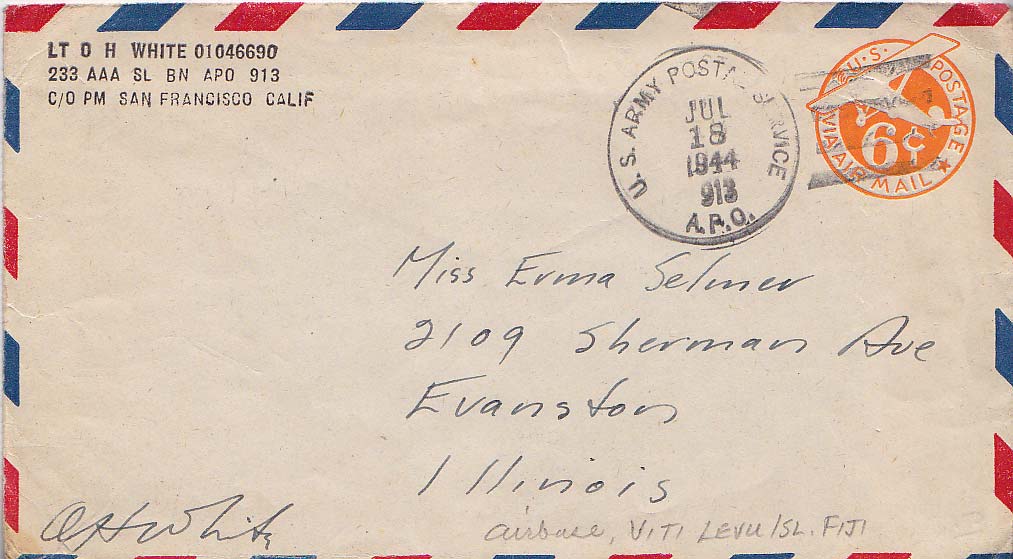 LT O H WHITE 01046690
233 AAA SL BN APO 913
C/O PM SAN FRANCISCO CALIF
U.S. ARMY POSTAL SERVICE
JUL
18
1944
913
A.P.O.
U.S. POSTAGE
6¢
VIA AIR MAIL
Miss Erma Selmer
2109 Sherman Ave
Evanston
Illinois
OH White
airbase, VITI LEVU ISL. FIJI